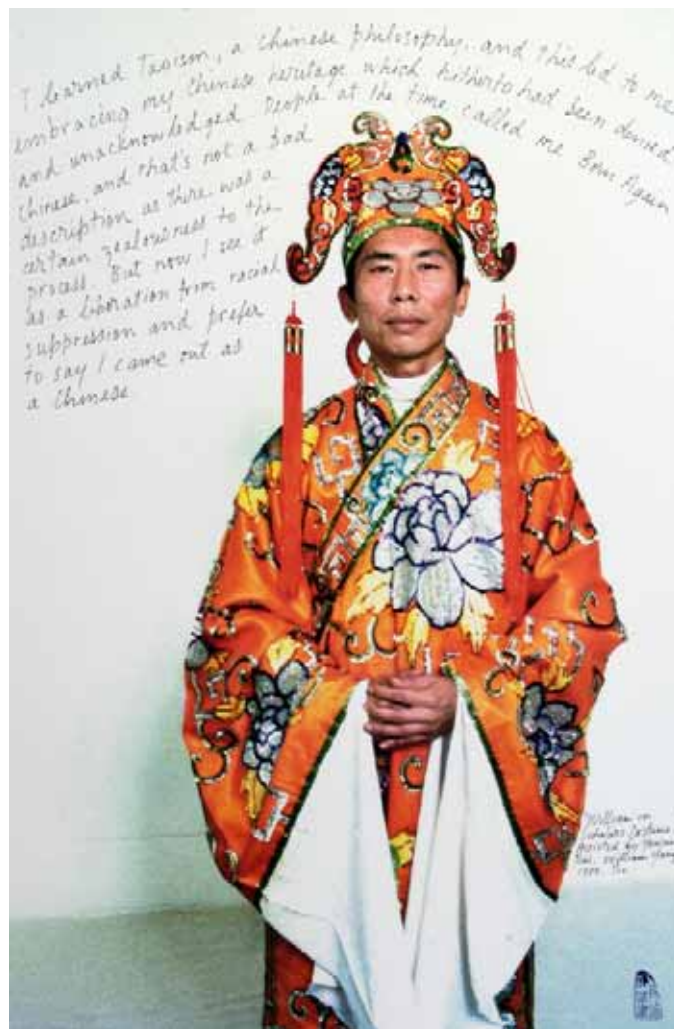 I learned Taoism, a Chinese philosophy, and this led to me
embracing my Chinese heritage which hitherto had been denied
and unacknowledged. People at the time called me Born Again
Chinese, and that's not a bad
description as there was a
certain zealousness to the
process. But now I see it
as a liberation from racial
suppression and prefer
to say I came out as
a Chinese
William in
Scholars Costume
Assisted by
William Yang